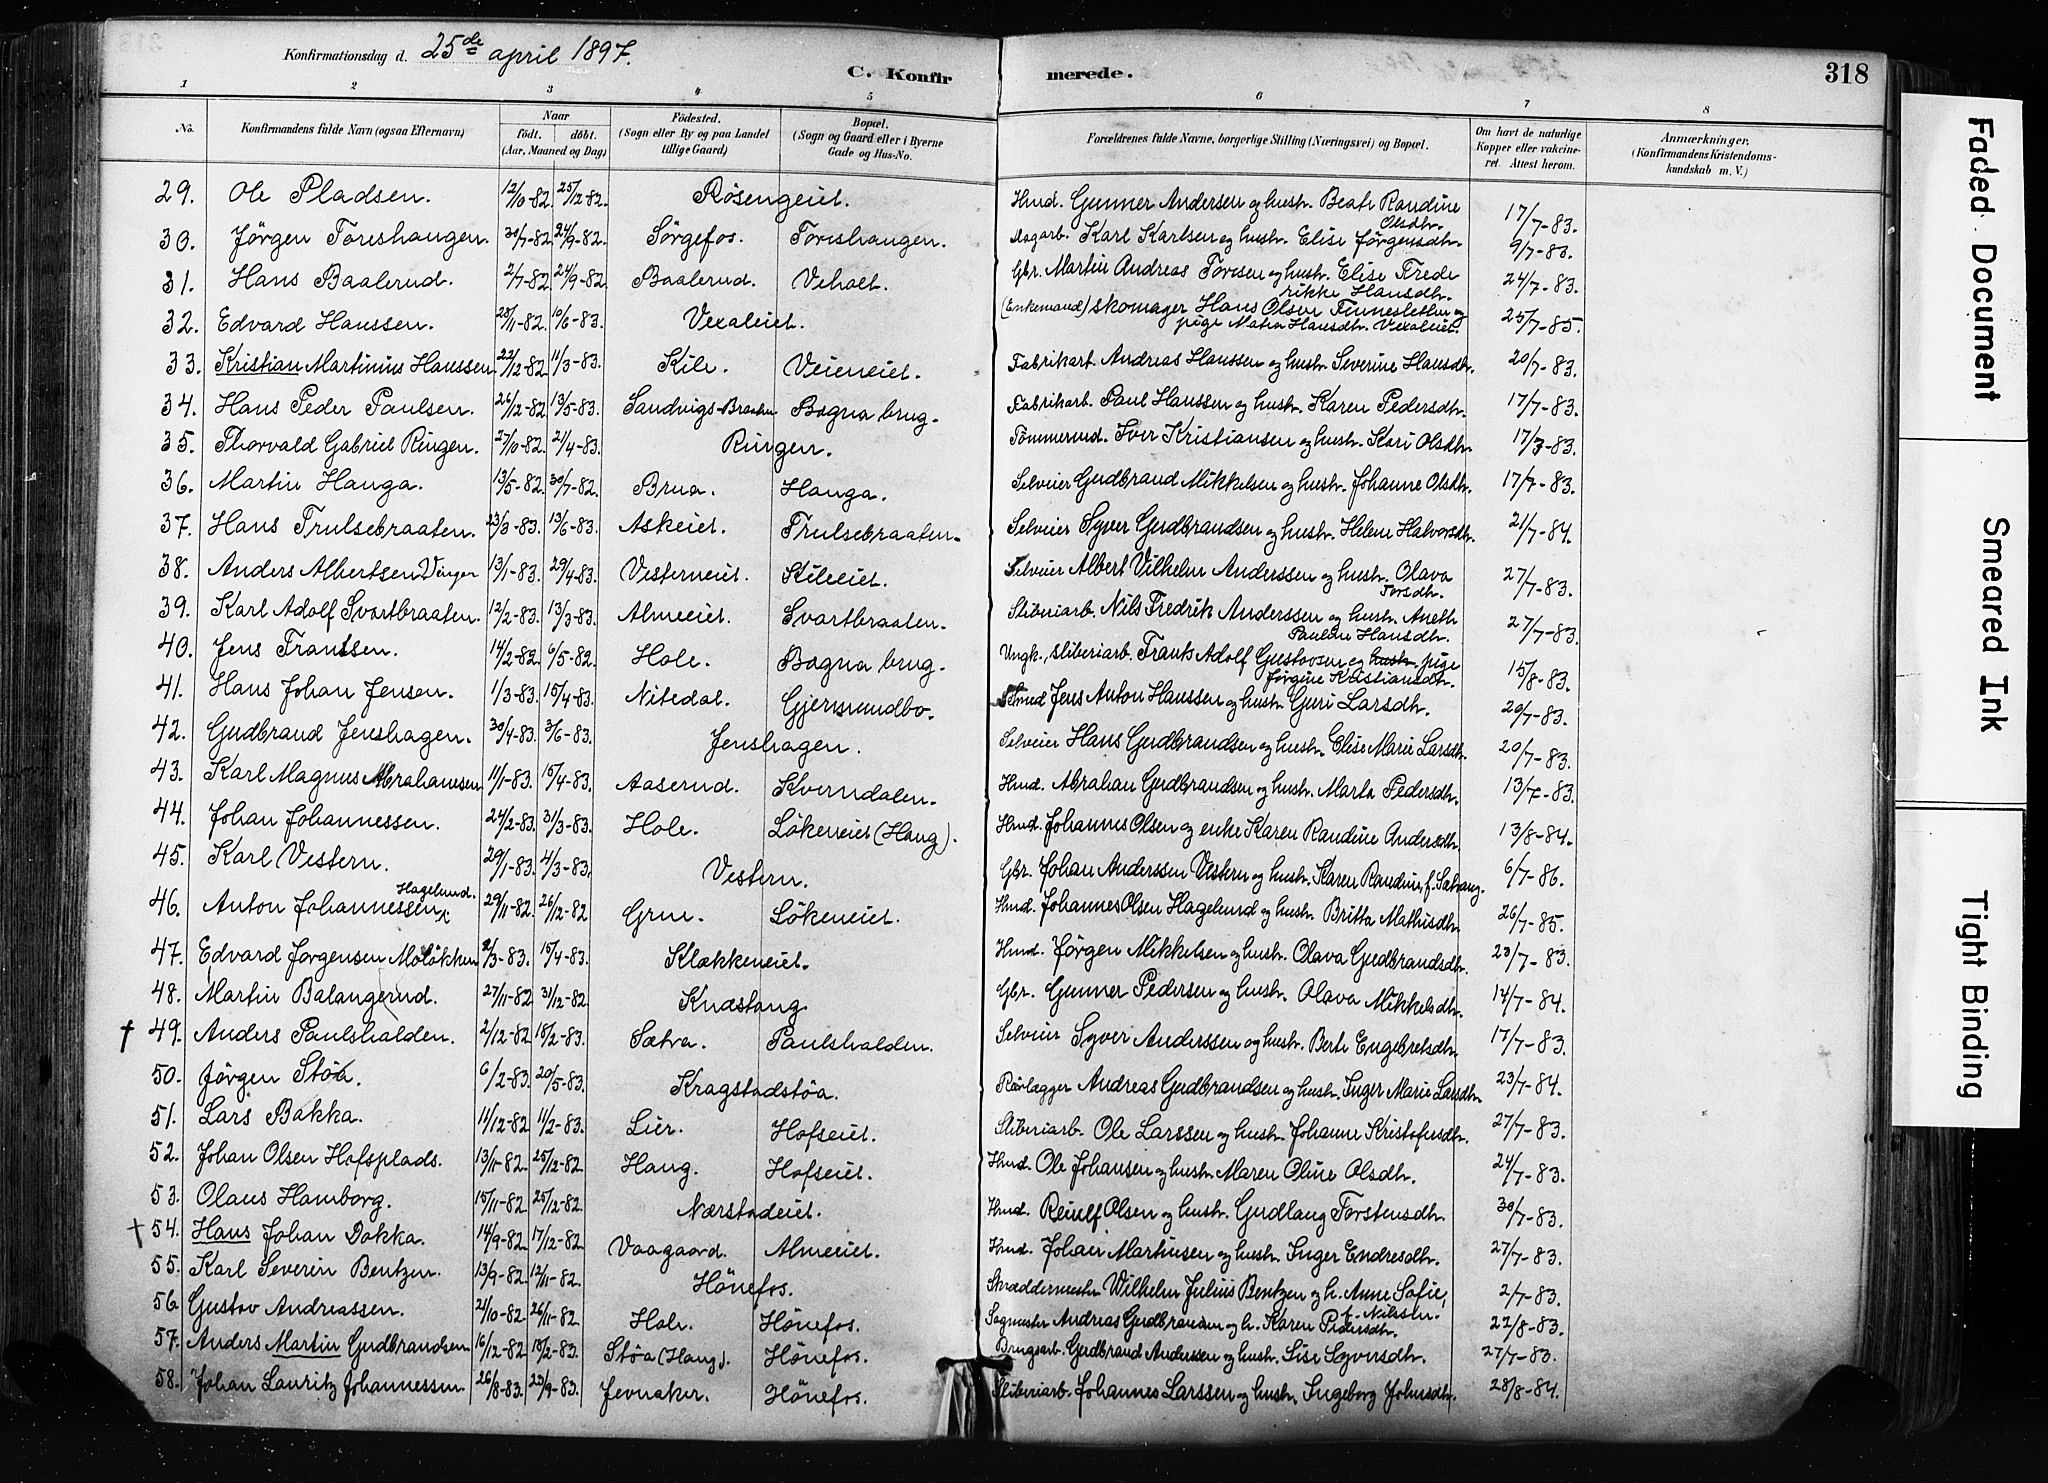 Konfirmationsdag d. 25de april 1897.
C. Konfirmerede.
318
1 2 3 4 5 6 7 8
No. Konfirmandens fulde Navn (ogsaa Efternavn) Naar födt. döbt. (Aar, Maaned og Dag) Födested. (Sogn eller By og paa Landet tillige Gaard) Bopæl. (Sogn og Gaard eller i Byerne Gade og Hus-No. Forældrenes fulde Navne, borgerlige Stilling (Næringsvei) og Bopæl. Om havt de naturlige Kopper eller vakcineret. Attest herom. Anmærkninger. (Konfirmandens Kristendomskundskab m. V.)
29. Ole Pladsen. 12/10-82. 25/12-82. Røsengeiet. Hmd. Gunner Andersen og hustr. Beate Randine Olsdtr. 17/7-83.
30. Jörgen Toreshaugen. 30/7-82. 24/9-82. Sörgefos. Toreshaugen. Karl Karlsen og hustr. Elise Jörgensdtr. 9/7-83.
31. Hans Baalerud. 2/7-82. 24/9-82. Baalerud. Veholt. Gbr. Martin Andreas Toresen og hustr. Elise Frederikke Hansdtr. 24/7-83.
32. Edvard Hanssen. 28/11-82. 10/6-83. Vexaleiet. (Enkemand) skomager Hans Olsen og pige Hansdtr. Vexaleiet. 25/7-85.
33. Kristian Martinius Hanssen 22/12-82. 11/3-83. Kile. Veieneiet. Fabrikarb. Andreas Hanssen og hustr. Severine Hansdtr. 20/7-83.
34. Hans Peder Paulsen. 26/12-82. 13/5-83. Sandvigs- Bægna brug. Fabrikarb. Paul Hanssen og hustr. Karen Pedersdtr. 17/7-83.
35. Thorvald Gabriel Ringen. 27/10-82. 21/4-83. Ringen. Tömmermd. Iver Kristiansen og hustr. Kari Olsdtr. 17/7-83.
36. Martin Hauga. 13/5-82. 30/7-82. Brua. Hauga. Selveier Gudbrand Mikkelsen og hustr. Johanne Olsdtr. 17/7-83.
37. Hans Trulsebraaten. 23/3-83. 13/6-83. Askeiet. Trulsebraaten. Selveier Syver Gudbrandsen og hustr. Helene Halvorsdtr. 21/7-84.
38. Anders Albertsen Venger 13/1-83. 29/4-83. Vesterneiet. Kileeiet. Selveier Albert Vilhelm Anderssen og hustr. Olava Torsdtr. 27/7-83.
39. Karl Adolf Svartbraaten. 12/2-83. 13/3-83. Almeeiet. Svartbraaten. Sliberiarb. Nils Fredrik Anderssen og hustr. Aneth Pauline Hansdtr. 27/7-83.
40. Jens Frantsen. 14/2-82. 6/5-82. Hole. Bægna brug. Ungk., sliberiarb. Frants Adolf Gustavsen og hustr. pige Jörgine Kristiansdtr. 15/8-83.
41. Hans Johan Jensen. 1/3-83. 15/4-83. Nitedal. Gjermundbo. Smed Jens Anton Hanssen og hustr. Guri Larsdtr. 20/7-83.
42. Gudbrand Jenshagen. 30/4-83. 3/6-83. Jenshagen. Selveier Hans Gudbrandsen og hustr. Elise Marie Larsdtr. 20/7-83.
43. Karl Magnus Abrahamsen 11/1-83. 15/4-83. Aaserud. Kverndalen. Hmd. Abraham Gudbrandsen og hustr. Marta Pedersdtr. 13/7-83.
44. Johan Johannessen. 24/2-83. 31/3-83. Hole. Lökeneiet (Haug). Hmd. Johannes Olsen og enke Karen Randine Andersdtr. 13/8-84.
45. Karl Vestern. 29/1-83. 4/3-83. Vestern. Gbr. Johan Anderssen Vestern og hustr. Karen Randine, f. Sætrang. 6/7-86.
46. Anton Johannessen Hagelund. 29/11-82. 26/12-82 Grue. Lökeneiet. Hmd. Johannes Olsen Hagelund og hustr. Britta Mathisdtr. 26/7-85.
47. Edvard Jörgensen Molökken 2/3-83. 15/4-83. Klækkeneiet. Hmd. Jörgen Mikkelsen og hustr. Olava Gudbrandsdtr. 23/7-83.
48. Martin Balangerud. 27/11-82. 31/12-82. Knæstang Gbr. Gunner Pedersen og hustr. Olava Mikkelsdtr. 14/7-84.
† 49. Anders Paulshalden. 2/12-82. 18/2-83. Sætra. Paulshalden. Selveier Syver Anderssen og hustr. Berte Engebretsdtr. 17/7-83.
50. Jörgen Støa. 6/2-83. 20/5-83. Kragstadstøa. Rörlægger Andreas Gudbrandsen og hustr. Inger Marie Larsdtr. 23/7-84.
51. Lars Bakka. 11/12-82. 11/2-83. Lier. Hofseiet. Sliberiarb. Ole Larssen og hustr. Johanne Kristofersdtr. 27/7-83.
52. Johan Olsen Hofsplads. 13/11-82. 25/12-82. Haug. Hofseiet. Hmd. Ole Johansen og hustr. Maren Oline Olsdtr. 24/7-83.
53. Olaus Hamborg. 15/11-82. 25/12-82. Nærstadeiet. Hmd. Reinelf Olsen og hustr. Gudlaug Torstensdtr. 30/7-83.
† 54. Hans Johan Dokka. 14/9-82. 17/12-82. Vaagaard. Almeeiet. Hmd. Johan Martinsen og hustr. Inger Endresdtr. 27/7-83.
55. Karl Severin Bentzen. 13/9-82. 12/11-82. Hönefos. Skræddermester Wilhelm Julius Bentzen og h. Anne Sofie, f. Nilssen. 2/7-83.
56. Gustav Andreassen. 21/10-82. 26/11-82. Hole. Hönefos. Sagmester Andreas Gudbrandsen og h. Karen Pedersdtr. 22/8-83.
57. Anders Martin Gudbrandsen 16/12-82. 18/2-83. Støa (Haug). Hönefos. Brugsarb. Gudbrand Anderssen og hustr. Lise Syversdtr. 27/7-83.
58. Johan Lauritz Johannessen. 26/8-83. 23/9-83. Jevnaker. Hönefos. Sliberiarb. Johannes Larssen og hustr. Ingeborg Johnsdtr. 28/8-84.
Faded Document
Smeared Ink
Tight Binding